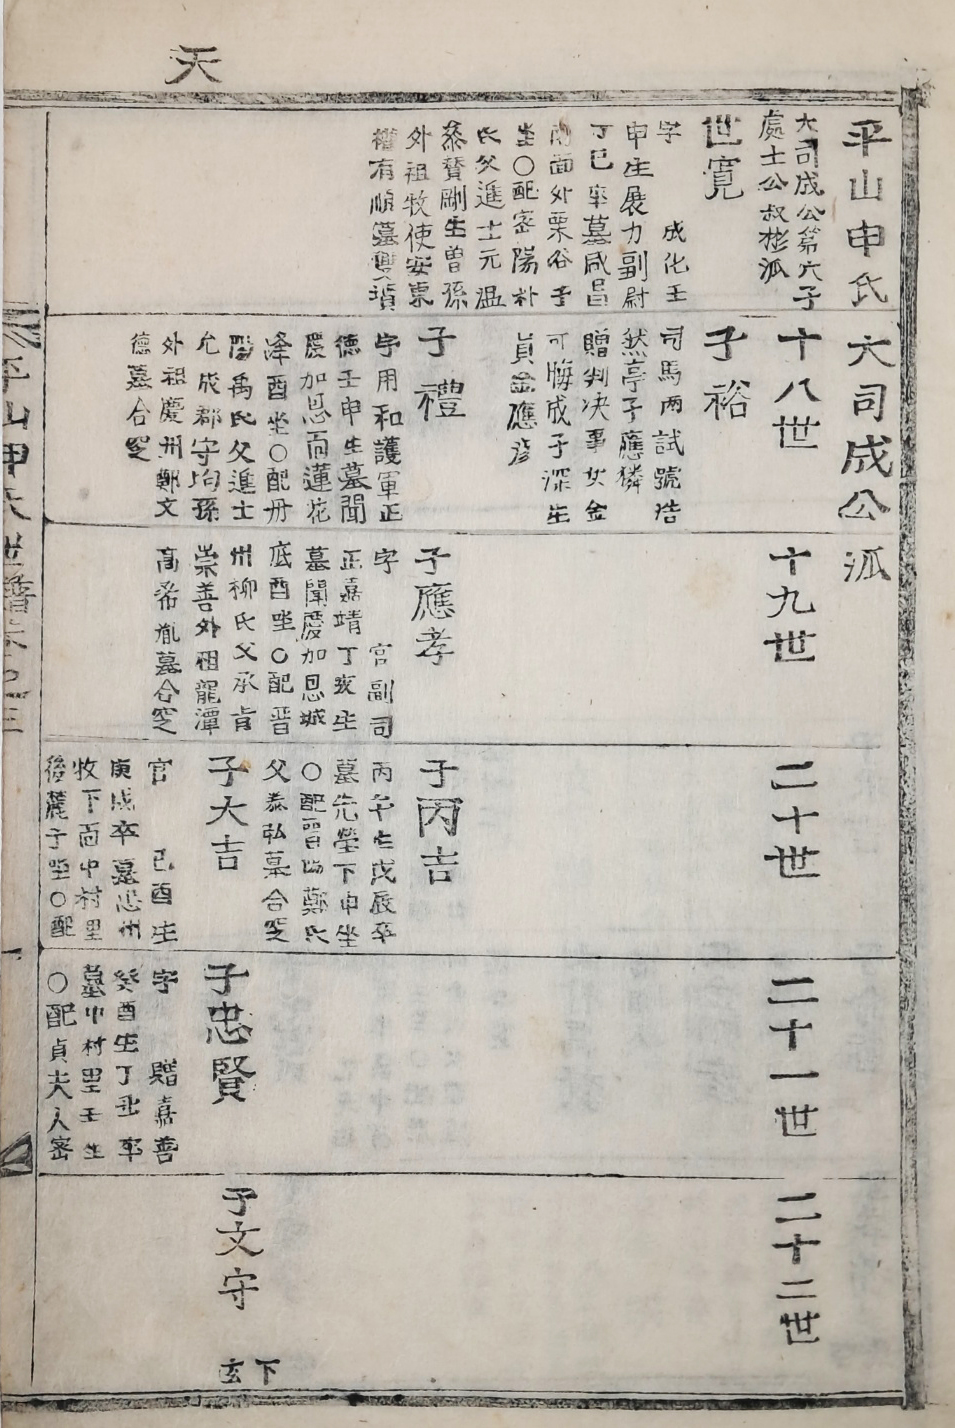 天
平山申氏大司成公派
大司成公第六子
處士公叔彬派
世寬
字 成化壬
申生展力副尉
丁巳卒墓咸昌
南面外栗谷子
坐○配密陽朴
氏父進士元溫
叅贊剛生曾孫
外祖牧使安東
權有順墓雙墳
十八世
子裕
司馬兩試號浩
然亭子應麟
贈判决事女金
可悔成子深生
員金應
子禮
字用和護軍正
德壬申生墓聞
慶加恩面蓮花
峰酉坐○配丹
陽禹氏父進士
允成郡守均孫
外祖慶州鄭文
德墓合窆
十九世
子應孝
字 官副司
正嘉靖丁亥生
墓聞慶加恩城
底酉坐○配晋
州柳氏父承肯
崇善外祖龍潭
高希胤墓合窆
二十世
子丙吉
丙午生戊辰卒
墓先塋下申坐
○配晋陽鄭氏
父泰弘墓合窆
子大吉
官 己酉生
庚戌卒墓忠州
牧下面中村里
後麓子坐○配
二十一世
子忠賢
字 贈嘉善
癸酉生丁丑卒
墓中村里壬坐
○配貞夫人密
二十二世
子文守
下
玄
平山申氏世譜卷之三
一